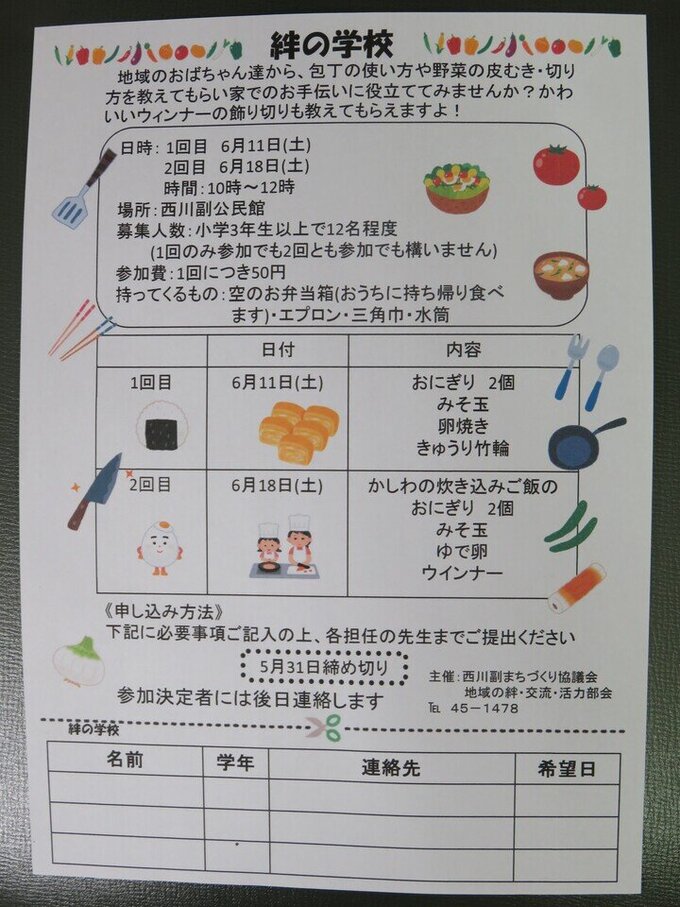 絆の学校
地域のおばちゃん達から、包丁の使い方や野菜の皮むき・切り
方を教えてもらい家でのお手伝いに役立ててみませんか？かわ
いいウィンナーの飾り切りも教えてもらえますよ！
日時：1回目　6月11日(土)
2回目　6月18日(土)
時間：10時～12時
場所：西川副公民館
募集人数：小学3年生以上で12名程度
(1回のみ参加でも2回とも参加でも構いません)
参加費：1回につき50円
持ってくるもの：空のお弁当箱(おうちに持ち帰り食べ
ます)・エプロン・三角巾・水筒
日付　内容
1回目　6月11日(土)　おにぎり　2個
みそ玉
卵焼き
きゅうり竹輪
2回目　6月18日(土)　かしわの炊き込みご飯の
おにぎり　2個
みそ玉
ゆで卵
ウインナー
《申し込み方法》
下記に必要事項ご記入の上、各担任の先生までご提出ください
5月31日締め切り
参加決定者には後日連絡します
主催：西川副まちづくり協議会
地域の絆・交流・活力部会
℡　45－1478
絆の学校
名前　学年　連絡先　希望日